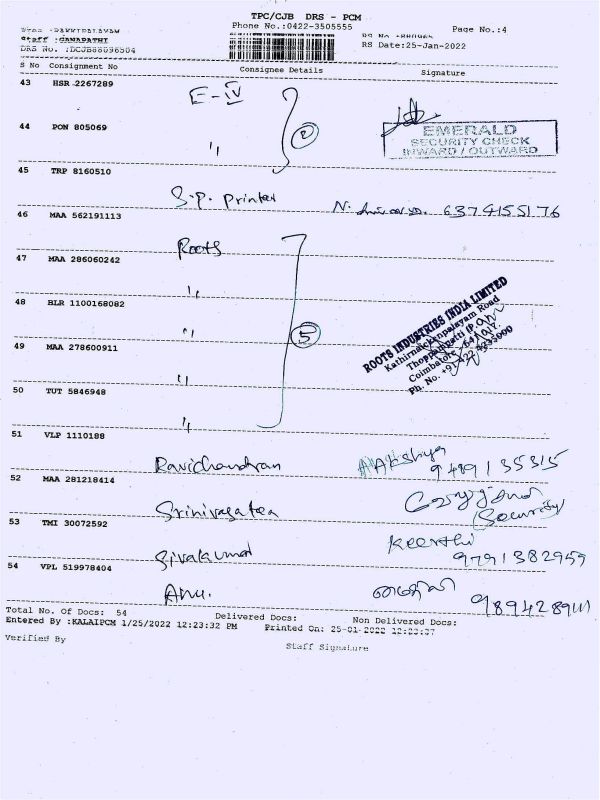 TPC/CJB DRS - PCM
Phone No.:0422-3505555
Page No.:4
Staff :GANAPATHI
DRS No. :DCJB88096504
RS Date:25-Jan-2022
S No Consignment No Consignee Details Signature
43 HSR 2267289
E-IV
44 PON 805069
〃
2
EMERALD
SECURITY CHECK
INWARD / OUTWARD
45 TRP 8160510
S.P. Printer
6374155176
46 MAA 562191113
Roots
47 MAA 286060242
〃
48 BLR 1100168082
〃
5
ROOTS INDUSTRIES INDIA LIMITED
Kathirnaickenpalayam Road
Thoppampatti (P
Coimbatore - 641
49 MAA 278600911
〃
50 TUT 5846948
〃
51 VLP 1110188
Ravichandran 9489135315
52 MAA 281218414
Srinivasa tea
(Security)
53 TMI 30072592
Sivakumar Keerthi
9791382959
54 VPL 519978404
Anu.
Total No. Of Docs: 54 Delivered Docs: Non Delivered Docs:
Entered By :KALAIPCM 1/25/2022 12:23:32 PM Printed On: 25-01-2022 12:23:37
Verified By Staff Signature